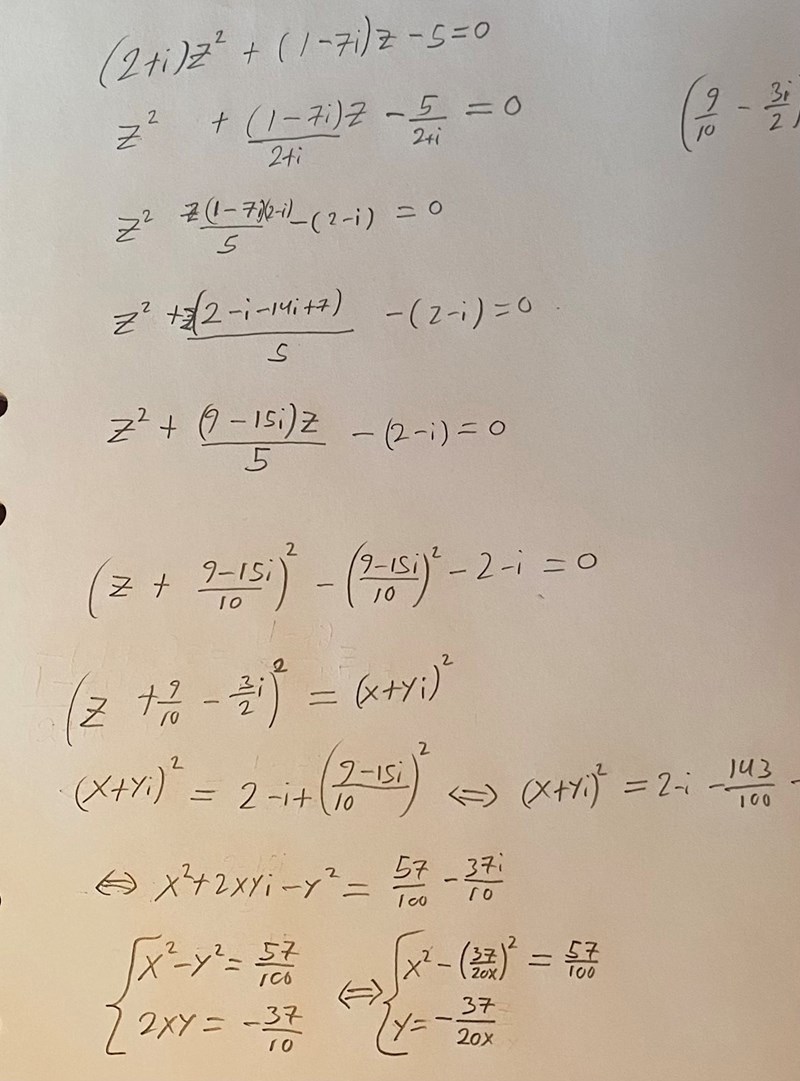 (2+i)z² + (1-7i)z - 5 = 0
z² + (1-7i)z/2+i - 5/2+i = 0
(9/10 - 3i/2)
z² z(1-7i)(2-i)/5 - (2-i) = 0
z² + z(2-i-14i+7)/5 - (2-i) = 0
z² + (9-15i)z/5 - (2-i) = 0
(z + 9-15i/10)² - (9-15i/10)² - 2-i = 0
(z + 9/10 - 3i/2)² = (x+yi)²
(x+yi)² = 2-i + (9-15i/10)² ⇔ (x+yi)² = 2-i - 143/100 -
⇔ x²+2xyi-y² = 57/100 - 37i/10
{ x²-y² = 57/100 ⇔ { x² - (37/20x)² = 57/100
2xy = -37/10 y = -37/20x